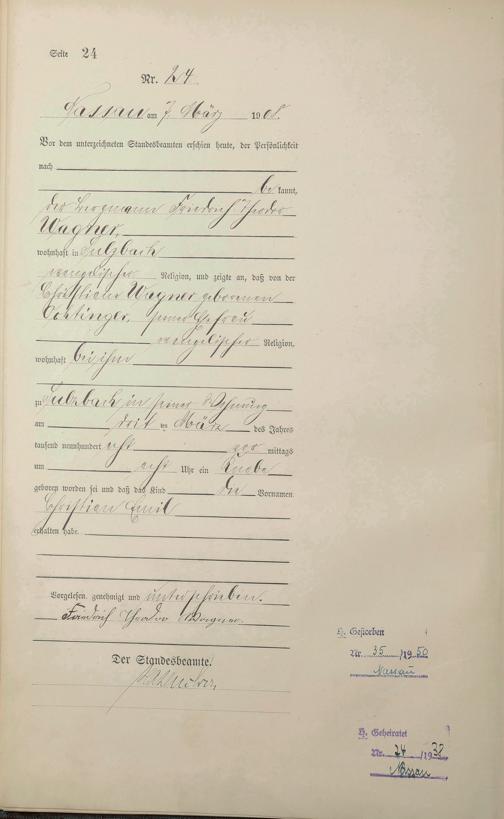 Seite 24
Nr. 24
Nassau am 7. März 1908.
Vor dem unterzeichneten Standesbeamten erschien heute, der Persönlichkeit
nach
be kannt,
der Bergmann Friedrich Theodor
Wagner,
wohnhaft in Sulzbach
evangelischer Religion, und zeigte an, daß von der
Wagner geborenen
seiner Ehefrau
evangelischer Religion,
wohnhaft bei ihm
zu Sulzbach in seiner Wohnung
am März des Jahres
tausend neunhundert acht mittags
um acht Uhr ein Knabe
geboren worden sei und daß das Kind den Vornamen
Christian Emil
erhalten habe.
Vorgelesen, genehmigt und unterschrieben.
Friedrich Theodor Wagner.
Der Standesbeamte.
H. Gestorben
Nr. 35 /1950
Nassau
H. Geheiratet
Nr. 24 /1938
Nassau